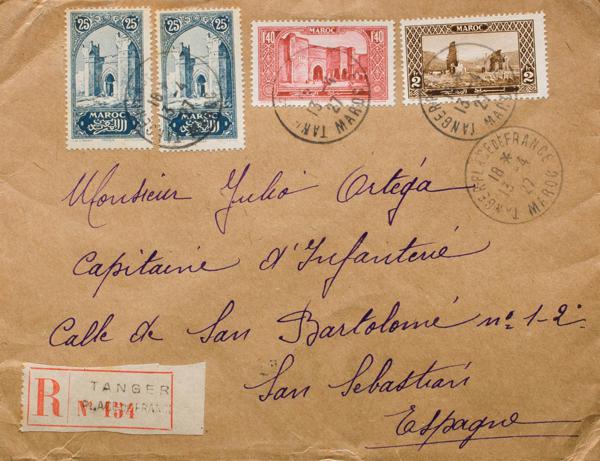 25 25
MAROC
25 25
MAROC
1F40 1F40
MAROC
MAROC
2F 2F
TANGER
13
27
MAROC
TANGER PLACE DE FRANCE
18 *
13 - 4
27
MAROC
Monsieur Julio Ortéga
Capitaine d'Infanterie
Calle de San Bartolomé nº 1-2º
San Sebastián
Espagne
R
TANGER
PLACE DE FRANCE
Nº 454